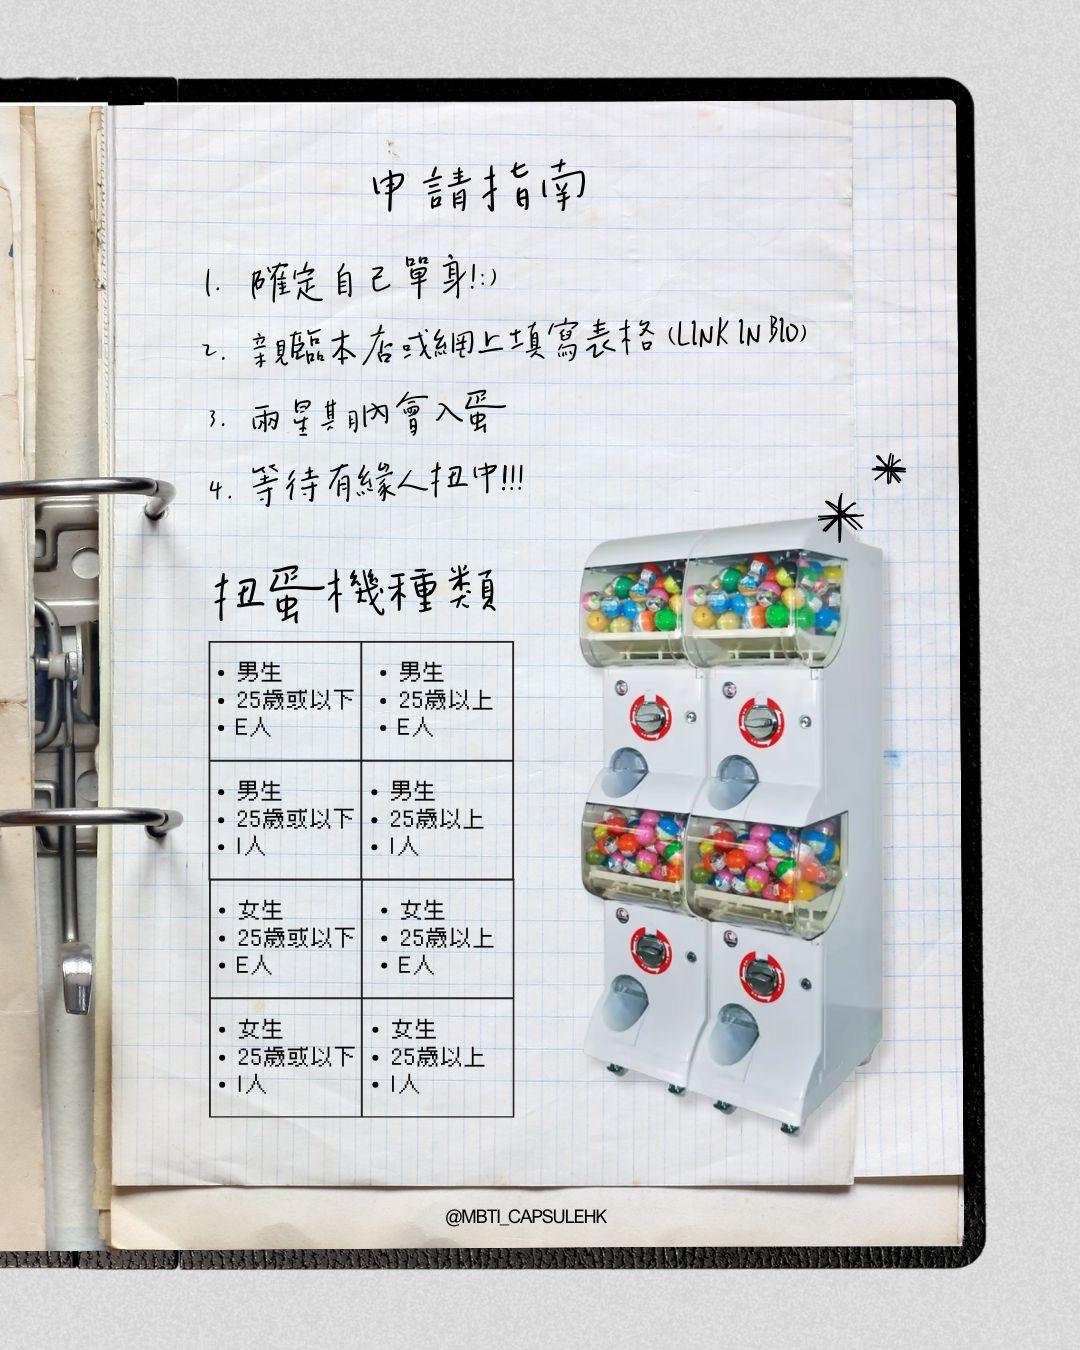 申請指南
1. 確定自己單身!:)
2. 親臨本店或網上填寫表格 (LINK IN BIO)
3. 兩星期內會入蛋
4. 等待有緣人扭中!!!
扭蛋機種類
• 男生
• 25歲或以下
• E人
• 男生
• 25歲以上
• E人
• 男生
• 25歲或以下
• I人
• 男生
• 25歲以上
• I人
• 女生
• 25歲或以下
• E人
• 女生
• 25歲以上
• E人
• 女生
• 25歲或以下
• I人
• 女生
• 25歲以上
• I人
@MBTI_CAPSULEHK